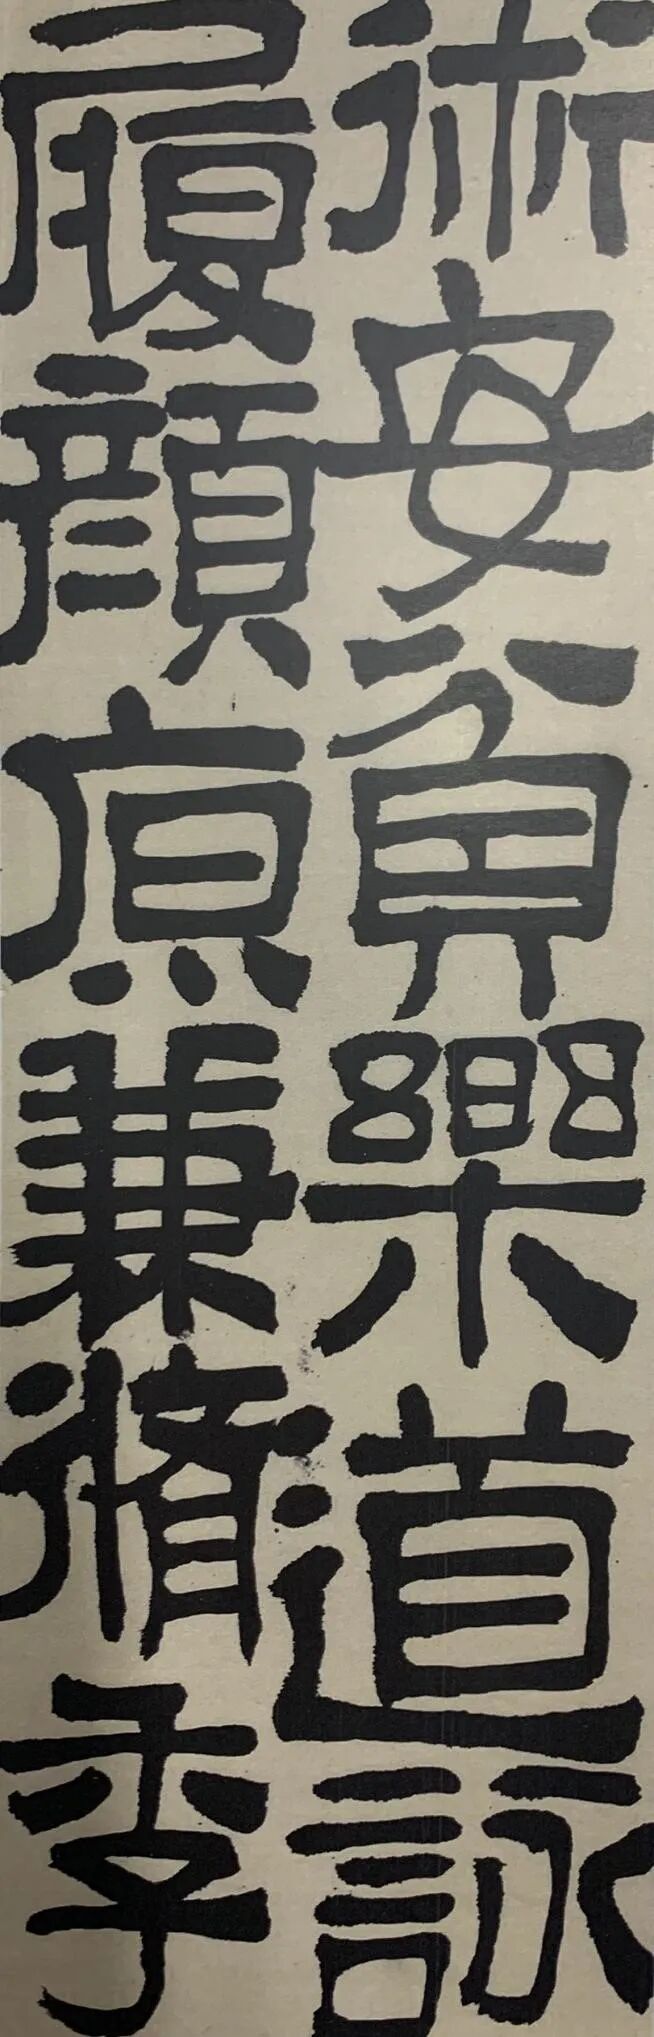 術安貧樂道詠
履顏原兼脩季